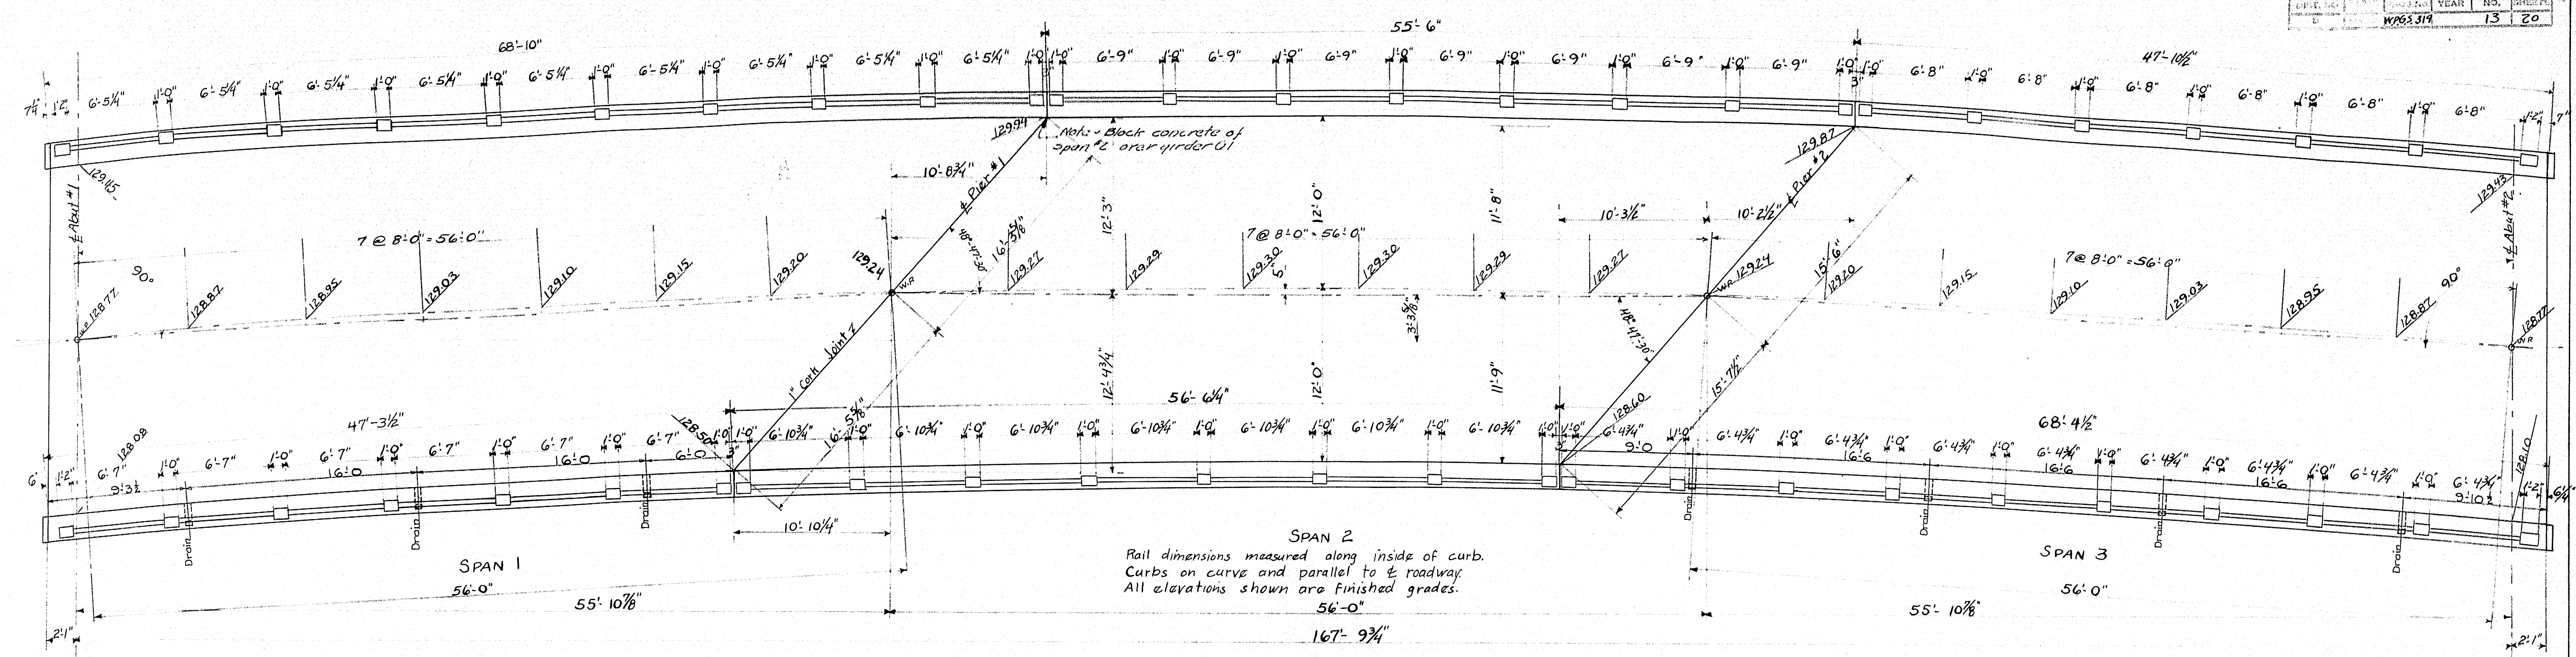 YEAR NO. SHEETS
WPGS 319 13 20
55'-6"
68'-10"
47'-10½"
7¼" 1'-2" 6'-5¼" 1'-0" 6'-5¼" 1'-0" 6'-5¼" 1'-0" 6'-5¼" 1'-0" 6'-5¼" 1'-0" 6'-5¼" 1'-0" 6'-5¼" 1'-0" 6'-5¼" 1'-0" 6'-5¼" 1'-0"
1'-0" 6'-9" 1'-0" 6'-9" 1'-0" 6'-9" 1'-0" 6'-9" 1'-0" 6'-9" 1'-0" 6'-9" 1'-0" 6'-9" 1'-0"
3"
1'-0" 6'-8" 1'-0" 6'-8" 1'-0" 6'-8" 1'-0" 6'-8" 1'-0" 6'-8" 1'-0" 6'-8" 1'-2" 7"
129.94
Note:- Block concrete of
Span #2 over girder G1
129.87
129.45
129.43
℄ Abut #1
℄ Pier #1
℄ Pier #2
℄ Abut #2
10'-8¾"
12'-3"
12'-0"
11'-8"
10'-3½"
10'-2½"
48°-47'-30"
16'-5⅝"
15'-6"
7 @ 8'-0" = 56'-0"
7 @ 8'-0" = 56'-0"
7 @ 8'-0" = 56'-0"
90°
90°
W.P. 128.77
128.87
128.95
129.03
129.10
129.15
129.20
129.24
W.P.
129.27
129.29
129.30
129.30
129.29
129.27
129.24
W.P.
129.20
129.15
129.10
129.03
128.95
128.87
128.77
W.P.
6"
3'-3⅜"
48°-47'-30"
1" Cork Joint
12'-4¾"
12'-0"
11'-9"
15'-7½"
16'-5⅝"
56'-6¼"
47'-3½"
68'-4½"
128.08
128.50
128.60
128.10
6" 1'-2" 6'-7" 1'-0" 6'-7" 1'-0" 6'-7" 1'-0" 6'-7" 1'-0" 6'-7" 1'-0" 6'-7" 1'-0"
3"
1'-0" 6'-10¾" 1'-0" 6'-10¾" 1'-0" 6'-10¾" 1'-0" 6'-10¾" 1'-0" 6'-10¾" 1'-0" 6'-10¾" 1'-0" 6'-10¾" 1'-0"
3"
1'-0" 6'-4¾" 1'-0" 6'-4¾" 1'-0" 6'-4¾" 1'-0" 6'-4¾" 1'-0" 6'-4¾" 1'-0" 6'-4¾" 1'-0" 6'-4¾" 1'-0" 6'-4¾" 1'-0" 6'-4¾" 1'-2" 6¼"
9'-3½ 16'-0 16'-0 6'-0
9'-0 16'-6 16'-6 16'-6 9'-10½
Drain
Drain
Drain
Drain
Drain
Drain
Drain
10'-10¼"
SPAN 1
SPAN 2
SPAN 3
Rail dimensions measured along inside of curb.
Curbs on curve and parallel to ℄ roadway.
All elevations shown are finished grades.
56'-0"
56'-0"
56'-0"
55'-10⅞"
55'-10⅞"
167'-9¾"
2'-1"
2'-1"